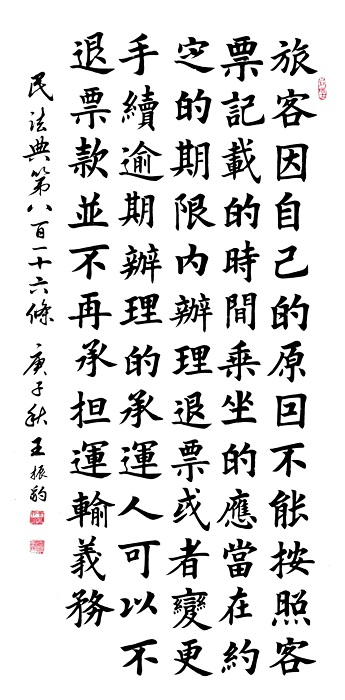 旅客因自己的原因不能按照客
票記載的時間乘坐的應當在約
定的期限内辦理退票或者變更
手續逾期辦理的承運人可以不
退票款並不再承担運輸義務
民法典第八百一十六條 庚子秋 王振豹